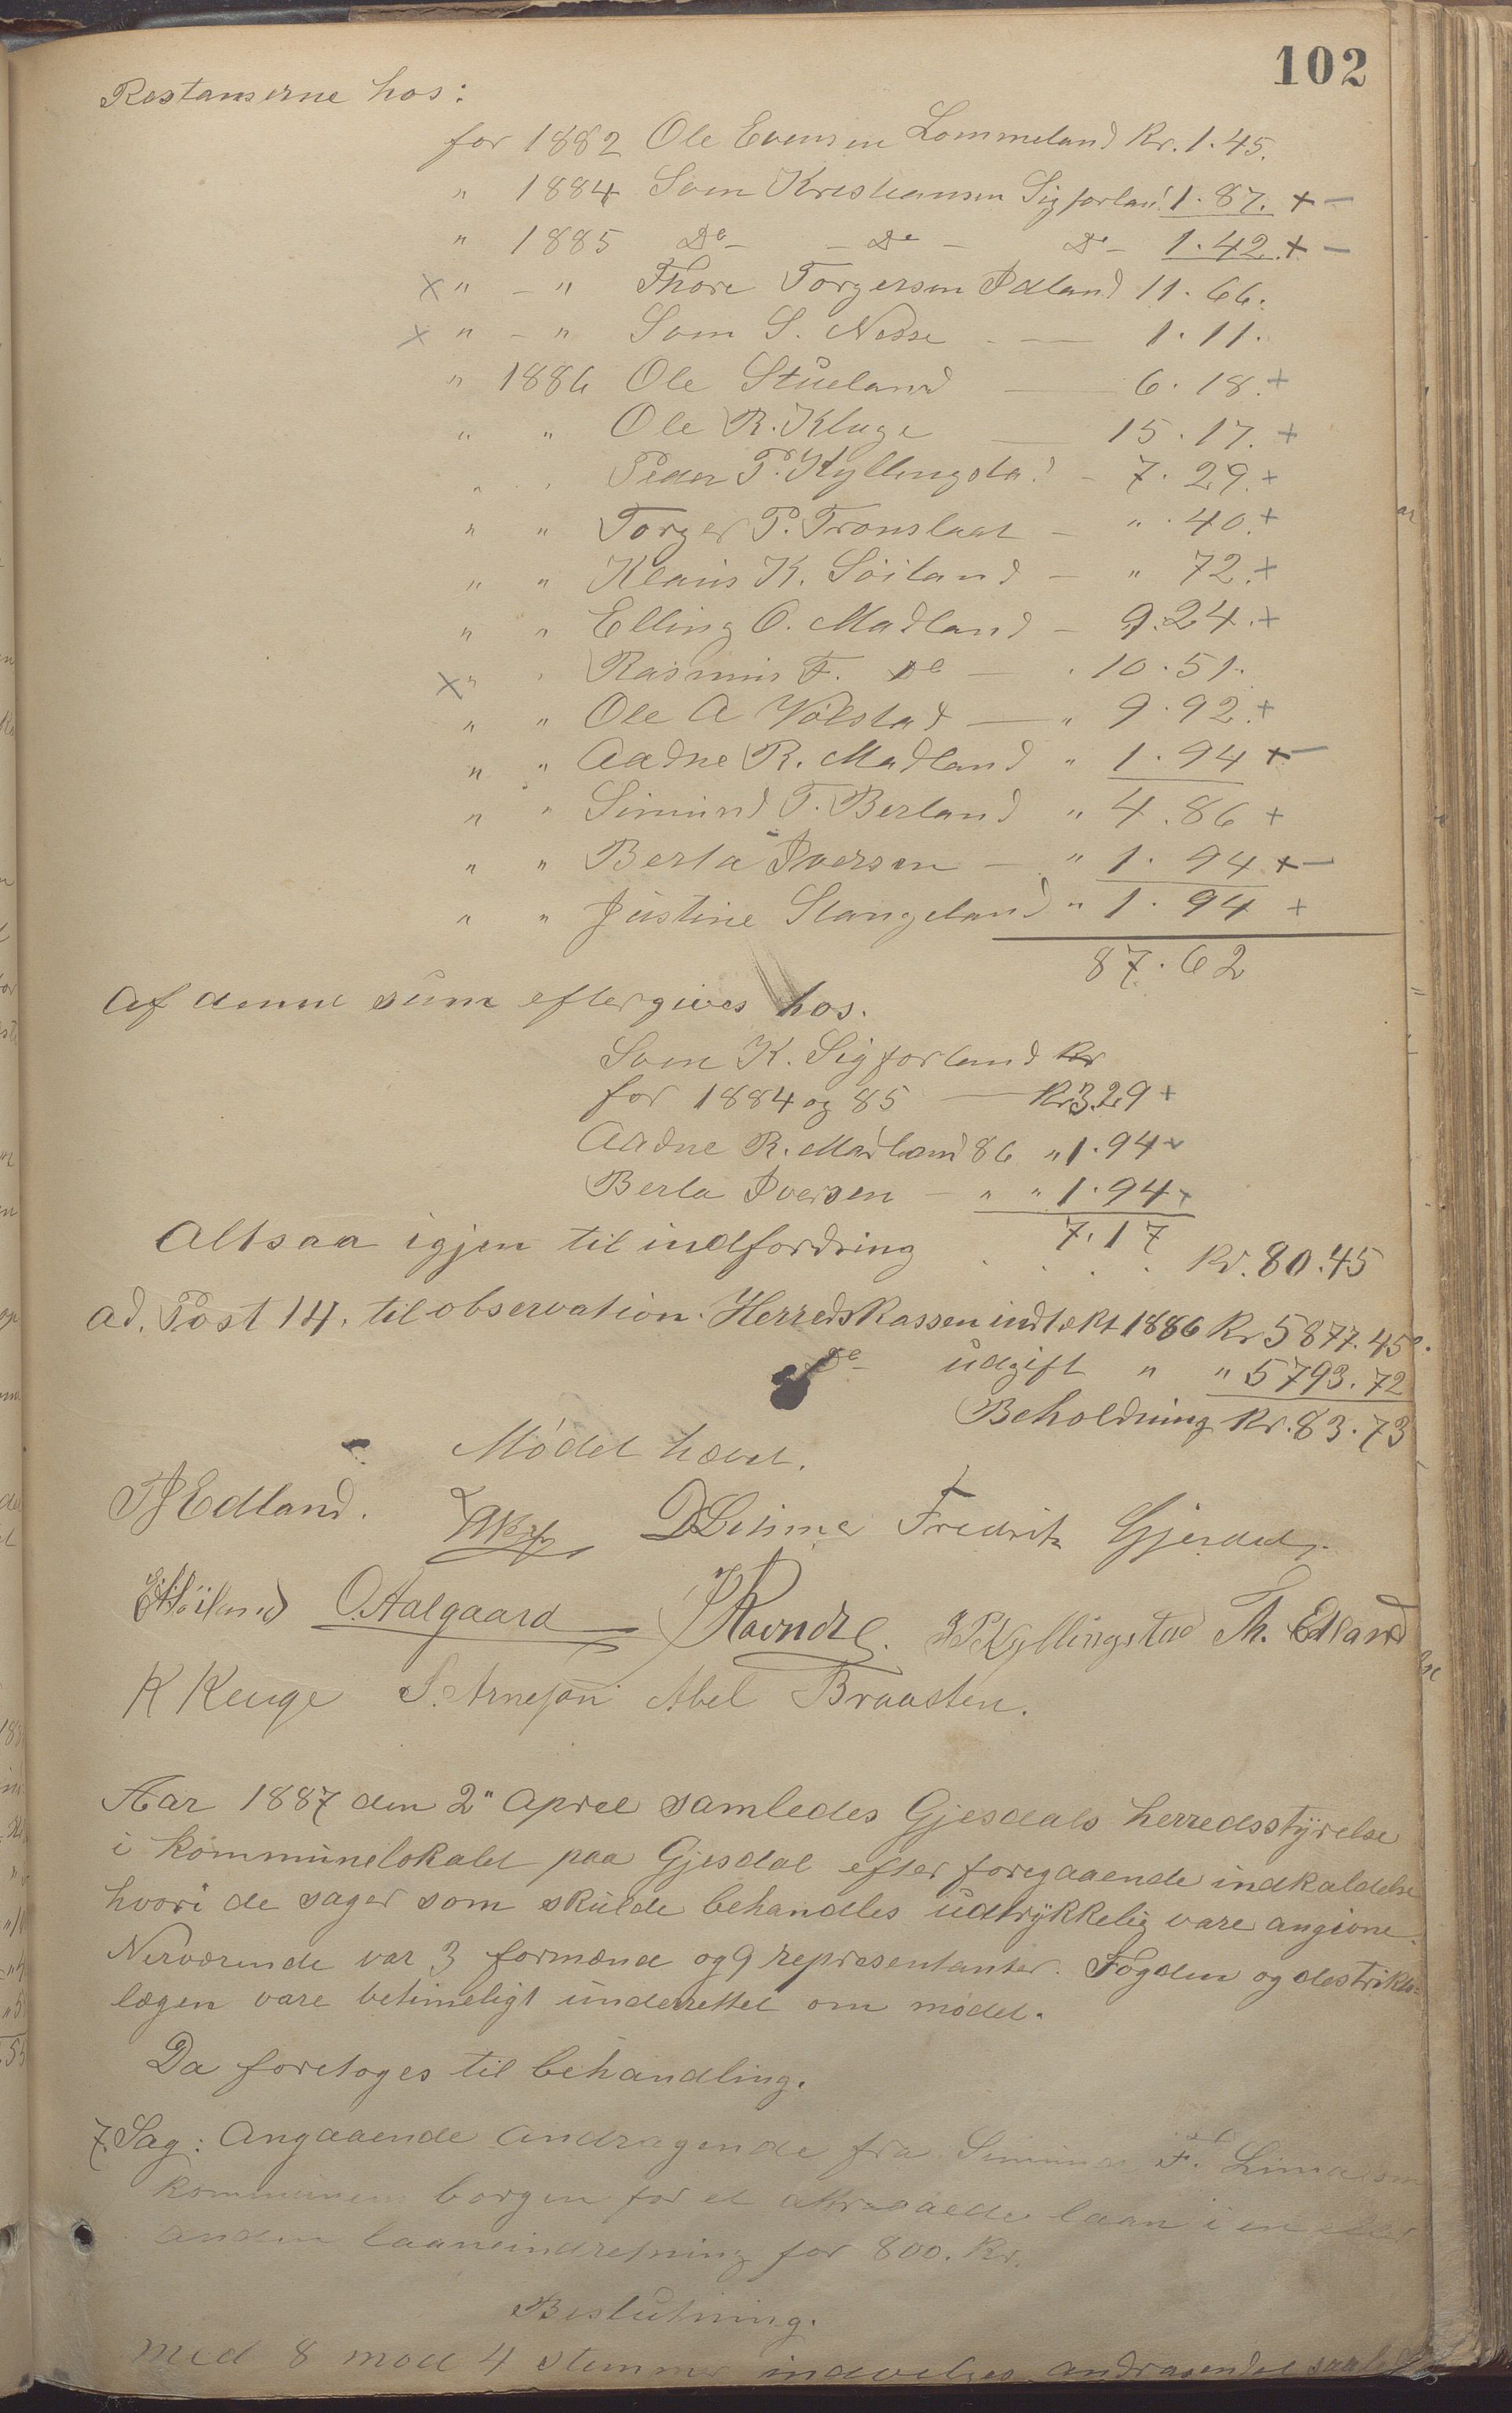 102
Restanserne hos:
for 1882 Ole Evensen Lommeland Kr. 1.45.
" 1884 Sven Kristiansen Sigforland 1.87. + —
" 1885 Do — Do — Do — 1.42. + —
× " — " Thore Torgersen Idland 11.66.
× " — " Sven S. Nesse — 1.11.
" 1886 Ole Stueland — 6.18. +
" " Ole R. Kluge — 15.17. +
" " Peder P. Kyllingstad — 7.29. +
" " Torger P. Tronslaat — " .40. +
" " Klaus K. Söiland — " 72. +
" " Elling O. Madland — 9.24. +
× " " Rasmus F. Do — . 10.51.
" " Ole A Volstad — " 9.92. +
" " Aadne R. Madland " 1.94 + —
" " Simund T. Berland " 4.86 +
" " Berta Iversen — " 1.94 + —
" " Justine Stangeland " 1.94 +
87.62
Af denne sum eftergives hos.
Sven K. Sigforland Kr
for 1884 og 85 — Kr 3.29 +
Aadne R. Madland 86 " 1.94 +
Berta Iversen — " " 1.94 +
7.17
Altsaa igjen til indfordring . . . . Kr. 80.45
Ad. Post 14. til observation. Herredskassen indtækt 1886 Kr 5877.45
Do — udgift " " 5793.72
Beholdning Kr. 83.73
Mödet hævet.
TJ Edland. D Limme Fredrik Gjesdal.
E. Höiland O. Aalgaard J Ravndl. J P Kyllingstad Th. Edland
K Kluge S. Arnesen Abel Braasten.
Aar 1887 den 2" April samledes Gjesdals herredsstyrelse
i kommunelokalet paa Gjesdal efter foregaaende indkaldelse
hvori de sager som skulde behandles udtrykkelig vare angivne.
Nerværende var 3 formænd og 9 representanter. Fogden og destrikts=
lægen vare betimeligt underrettet om mödet.
Da foretoges til behandling.
7. Sag: Angaaende andragende fra Simund F. Lima om
kommunens borgen for et attraaede laan i en eller
anden laaneindretning for 800. Kr.
Beslutning.
Med 8 mod 4 stemmer indvelges andragendet saaledes